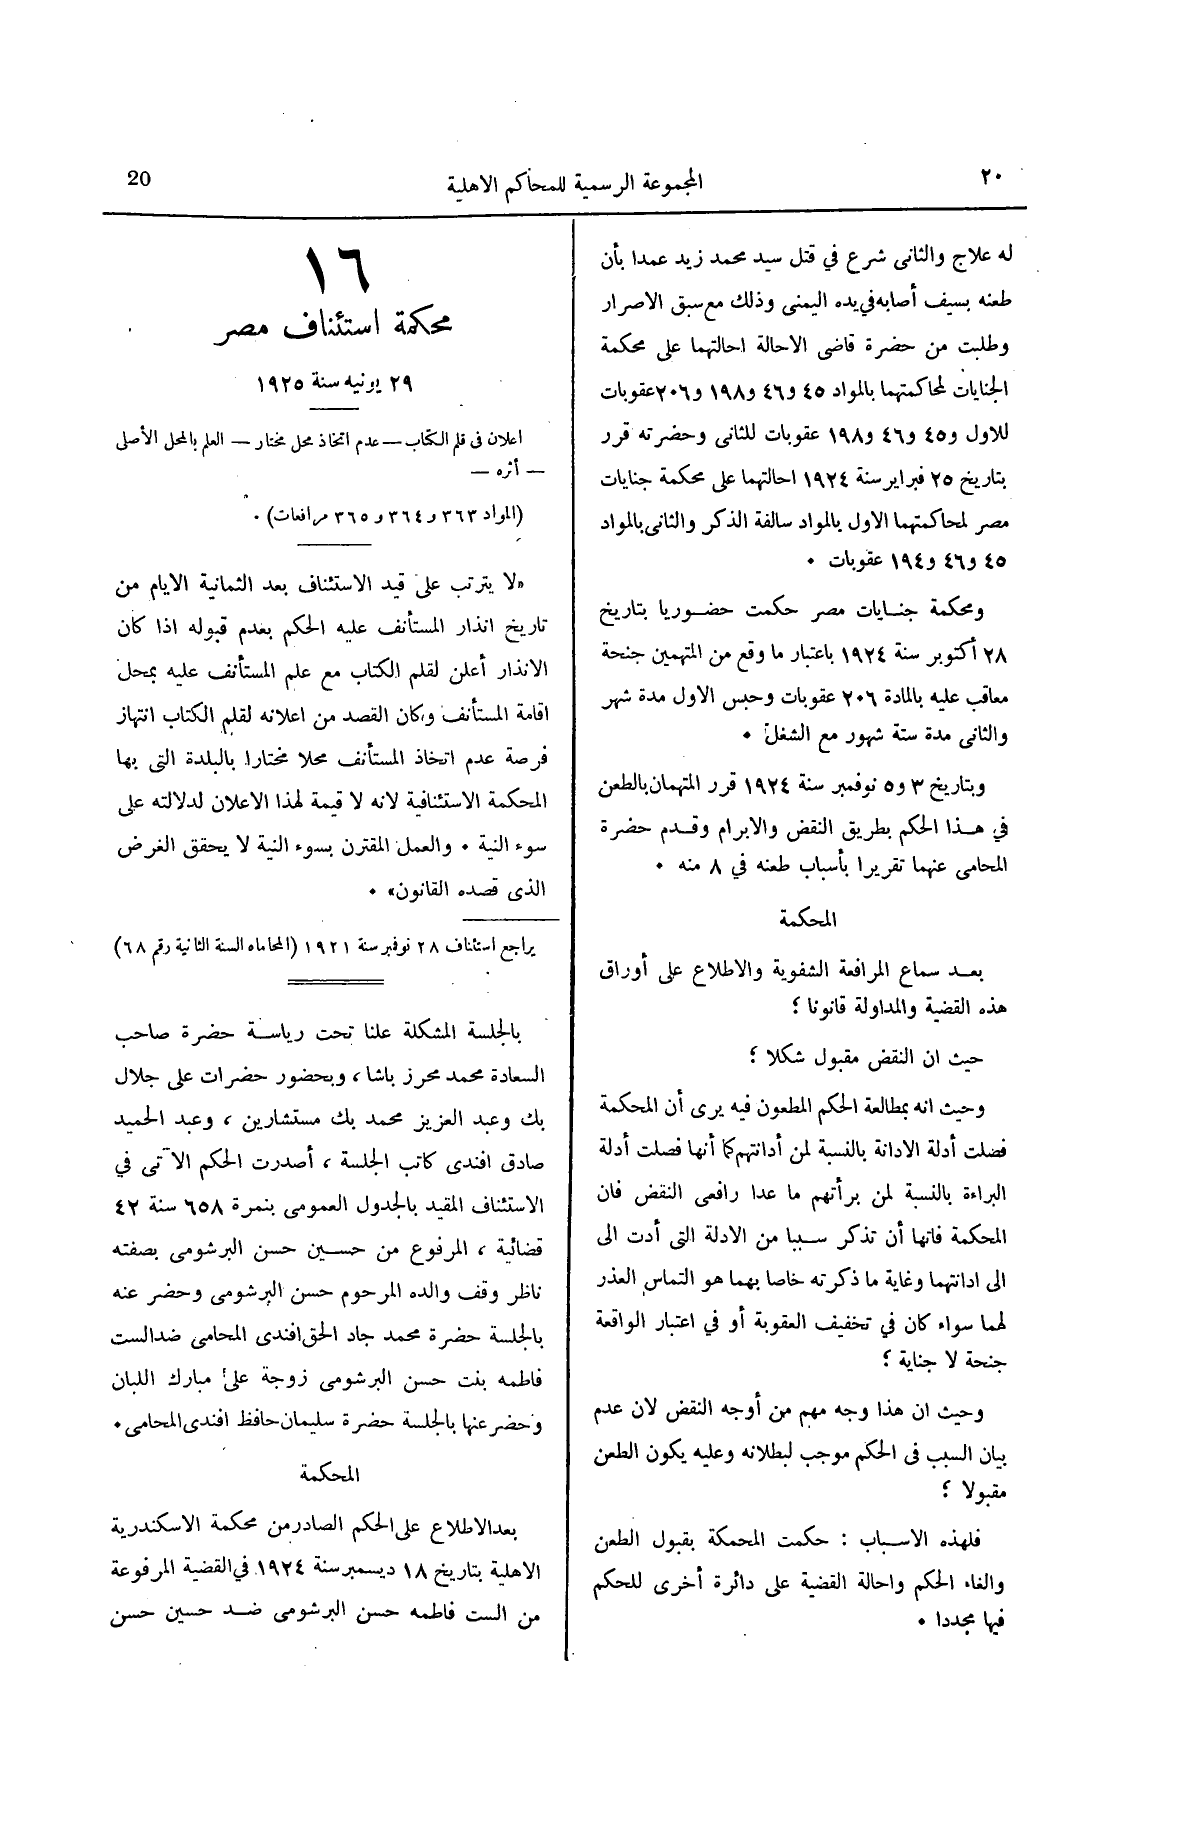 ٢٠
المجموعة الرسمية للمحاكم الاهلية
20
له علاج والثانى شرع في قتل سيد محمد زيد عمدا بأن
طعنه بسيف أصابه في يده اليمنى وذلك مع سبق الاصرار
وطلبت من حضرة قاضى الاحالة احالتهما على محكمة
الجنايات لمحاكمتهما بالمواد ٤٥ و٤٦ و١٩٨ و٢٠٦ عقوبات
للاول و٤٥ و٤٦ و١٩٨ عقوبات للثانى وحضرته قرر
بتاريخ ٢٥ فبراير سنة ١٩٢٤ احالتهما على محكمة جنايات
مصر لمحاكمتهما الاول بالمواد سالفة الذكر والثانى بالمواد
٤٥ و٤٦ و١٩٤ عقوبات ٠
ومحكمة جنايات مصر حكمت حضوريا بتاريخ
٢٨ أكتوبر سنة ١٩٢٤ باعتبار ما وقع من المتهمين جنحة
معاقب عليه بالمادة ٢٠٦ عقوبات وحبس الاول مدة شهر
والثانى مدة ستة شهور مع الشغل ٠
وبتاريخ ٣ و٥ نوفمبر سنة ١٩٢٤ قرر المتهمان بالطعن
في هذا الحكم بطريق النقض والابرام وقدم حضرة
المحامى عنهما تقريرا بأسباب طعنه في ٨ منه ٠
المحكمة
بعد سماع المرافعة الشفوية والاطلاع على أوراق
هذه القضية والمداولة قانونا ؛
حيث ان النقض مقبول شكلا ؛
وحيث انه بمطالعة الحكم المطعون فيه يرى أن المحكمة
فصلت أدلة الادانة بالنسبة لمن أدانتهم كما أنها فصلت أدلة
البراءة بالنسبة لمن برأتهم ما عدا رافعى النقض فان
المحكمة فاتها أن تذكر سببا من الادلة التى أدت الى
الى ادانتهما وغاية ما ذكرته خاصا بهما هو التماس العذر
لهما سواء كان في تخفيف العقوبة أو في اعتبار الواقعة
جنحة لا جناية ؛
وحيث ان هذا وجه مهم من أوجه النقض لان عدم
بيان السبب فى الحكم موجب لبطلانه وعليه يكون الطعن
مقبولا ؛
فلهذه الاسباب : حكمت المحمكة بقبول الطعن
والغاء الحكم واحالة القضية على دائرة أخرى للحكم
فيها مجددا ٠
١٦
محكمة استئناف مصر
٢٩ يونيه سنة ١٩٢٥
اعلان فى قلم الكتاب — عدم اتخاذ محل مختار — العلم بالمحل الأصلى
— أثره —
(المواد ٣٦٣ و٣٦٤ و٣٦٥ مرافعات) ٠
«لا يترتب على قيد الاستئناف بعد الثمانية الايام من
تاريخ انذار المستأنف عليه الحكم بعدم قبوله اذا كان
الانذار أعلن لقلم الكتاب مع علم المستأنف عليه بمحل
اقامة المستأنف وكان القصد من اعلانه لقلم الكتاب انتهاز
فرصة عدم اتخاذ المستأنف محلا مختارا بالبلدة التى بها
المحكمة الاستئنافية لانه لا قيمة لهذا الاعلان لدلالته على
سوء النية ٠ والعمل المقترن بسوء النية لا يحقق الغرض
الذى قصده القانون» ٠
يراجع استئناف ٢٨ نوفمبر سنة ١٩٢١ (المحاماه السنة الثانية رقم ٦٨)
بالجلسة المشكلة علنا تحت رياسة حضرة صاحب
السعادة محمد محرز باشا ، وبحضور حضرات على جلال
بك وعبد العزيز محمد بك مستشارين ، وعبد الحميد
صادق افندى كاتب الجلسة ، أصدرت الحكم الآتى في
الاستئناف المقيد بالجدول العمومى بنمرة ٦٥٨ سنة ٤٢
قضائية ، المرفوع من حسين حسن البرشومى بصفته
ناظر وقف والده المرحوم حسن البرشومى وحضر عنه
بالجلسة حضرة محمد جاد الحق افندى المحامى ضد الست
فاطمه بنت حسن البرشومى زوجة على مبارك اللبان
وحضر عنها بالجلسة حضرة سليمان حافظ افندى المحامى ٠
المحكمة
بعد الاطلاع على الحكم الصادر من محكمة الاسكندرية
الاهلية بتاريخ ١٨ ديسمبر سنة ١٩٢٤ في القضية المرفوعة
من الست فاطمه حسن البرشومى ضد حسين حسن